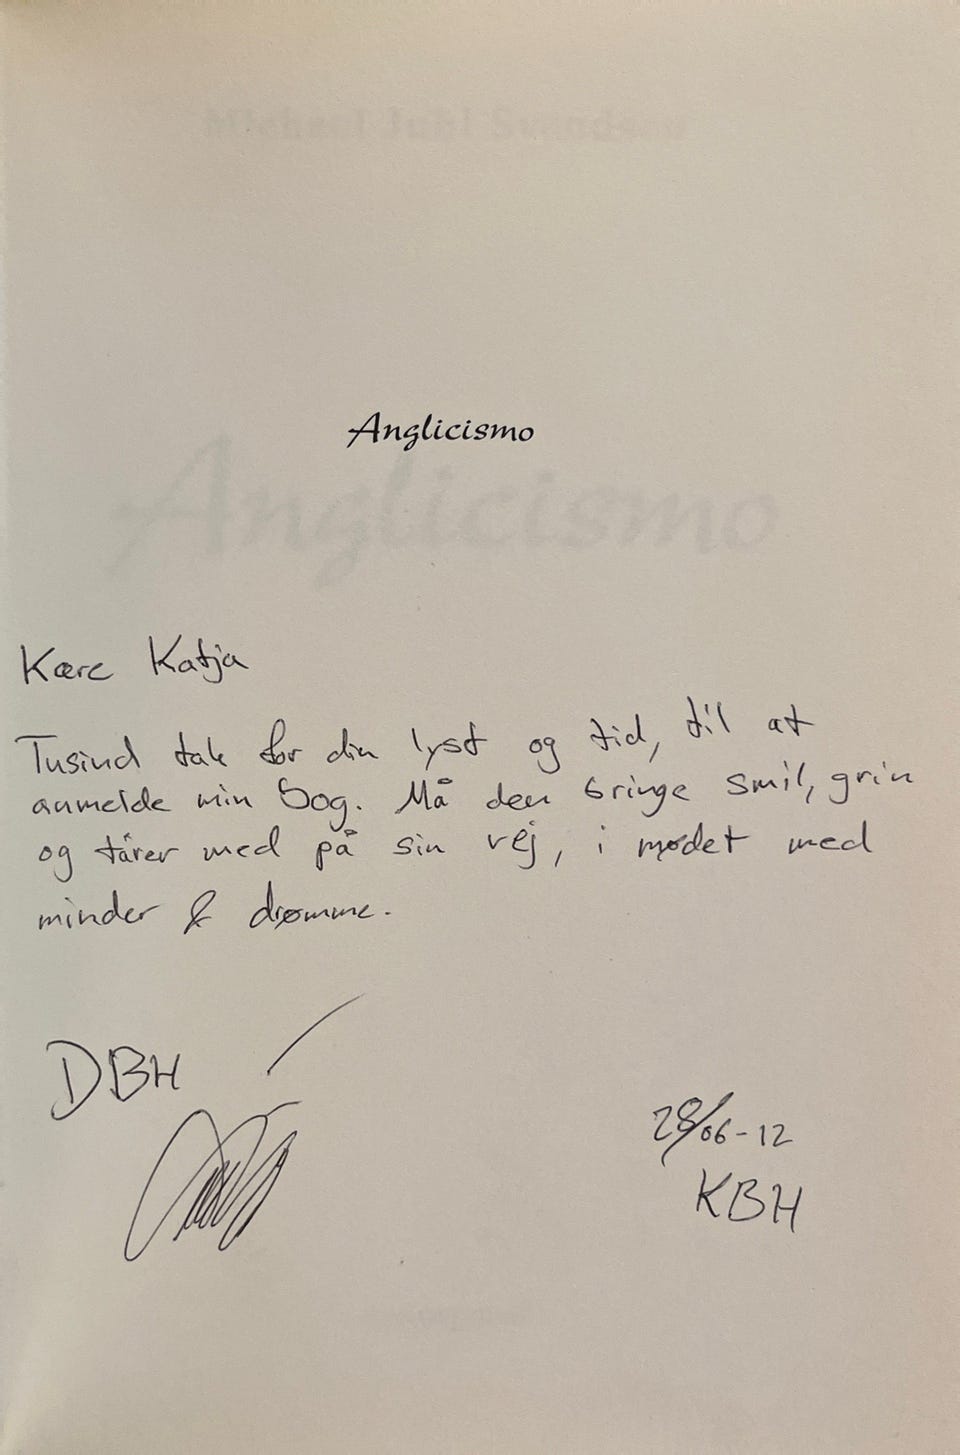 Michael Juhl Svendsen
Anglicismo
Anglicismo
Kære Katja
Tusind tak for din lyst og tid, til at
anmelde min bog. Må den bringe smil, grin
og tårer med på sin vej, i mødet med
minder & drømme.
DBH
28/06-12
KBH